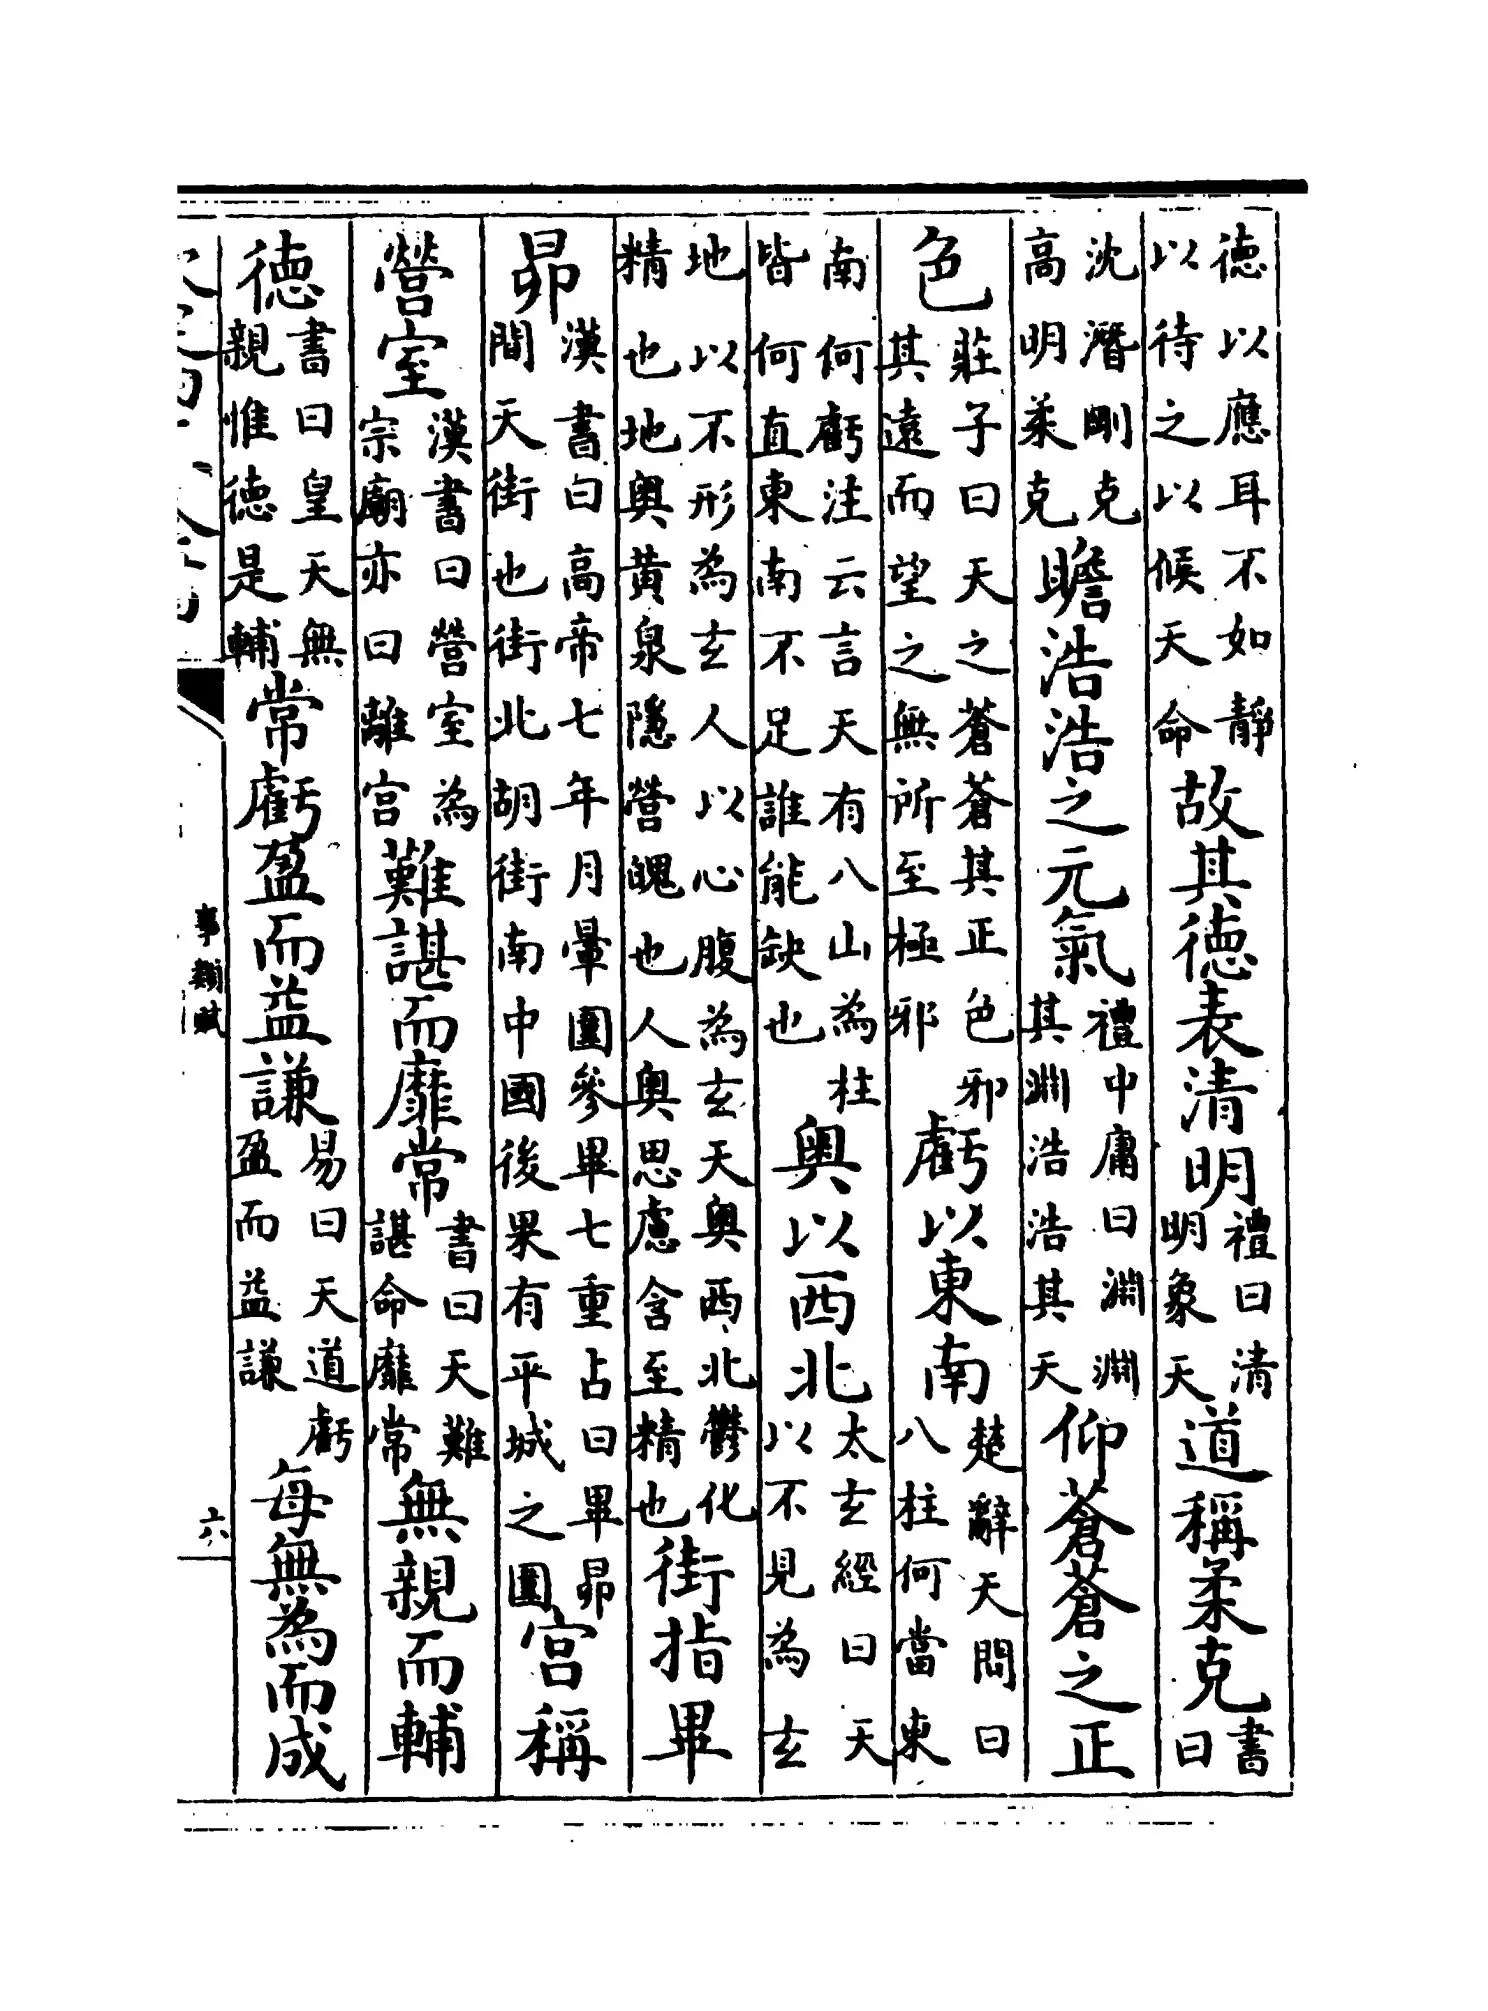 德以應耳不如靜以待之以候天命故其德表清明禮曰清明象天道稱柔克書曰
沈潛剛克高明柔克瞻浩浩之元氣禮中庸曰淵淵其淵浩浩其天仰蒼蒼之正
色莊子曰天之蒼蒼其正色邪其遠而望之無所至極邪虧以東南楚辭天問曰八柱何當東
南何虧注云言天有八山為柱皆何直東南不足誰能缺也奥以西北太玄經曰天以不見為玄
地以不形為玄人以心腹為玄天奥西北鬱化精也地奥黃泉隱營魄也人奥思慮含至精也街指畢
昴漢書曰高帝七年月暈圍參畢七重占曰畢昴間天街也街北胡街南中國後果有平城之圍宮稱
營室漢書曰營室為宗廟亦曰離宮難諶而靡常書曰天難諶命靡常無親而輔
德書曰皇天無親惟德是輔常虧盈而益謙易曰天道虧盈而益謙每無為而成
事類賦
六